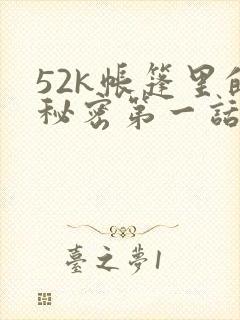 52k帳篷里的
秘密第一話
臺之夢1